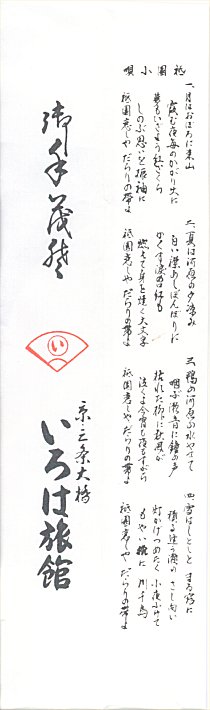 祇園小唄
一、月はおぼろに東山
霞む夜毎のかがり火に
夢もいざよう紅ざくら
しのぶ思いを振袖に
祇園恋しやだらりの帯よ
二、夏は河原の夕涼み
白い襟あしぼんぼりに
かくす涙の口紅も
燃えて身を焼く大文字
祇園恋しやだらりの帯よ
三、鴨の河原の水やせて
咽ぶ瀬音に鐘の声
枯れた柳に秋風が
泣くよ今宵も夜もすがら
祇園恋しやだらりの帯よ
四、雪はしとしとまる窓に
積る逢う瀬のさし向い
灯かげつめたく小夜ふけて
もやい枕に川千鳥
祇園恋しやだらりの帯よ
御手茂登
い
京三条大橋
いろは旅館